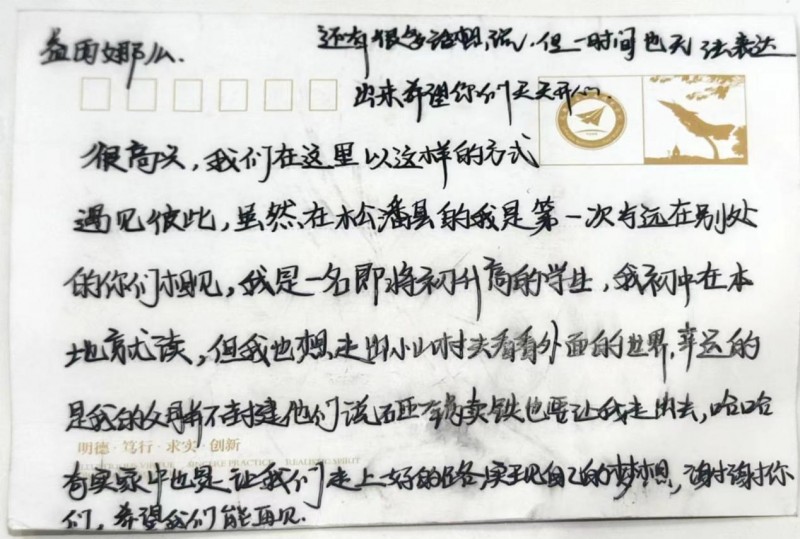 益西娜么.
还有很多话想说,但一时间也无法表达
出来希望你们天天开心.
很高兴,我们在这里以这样的方式
遇见彼此,虽然在松潘县的我是第一次与远在别处
的你们相见,我是一名即将初升高的学生,我初中在本
地就读,但我也想走出小山村去看看外面的世界,幸运的
是我的父母并不封建他们说砸锅卖铁也要让我走出去,哈哈
明德·笃行·求实·创新
PRACTICE REALISTIC SPIRIT
其实家中也是让我们走上好的路实现自己的梦想,谢谢你
们,希望我们能再见.